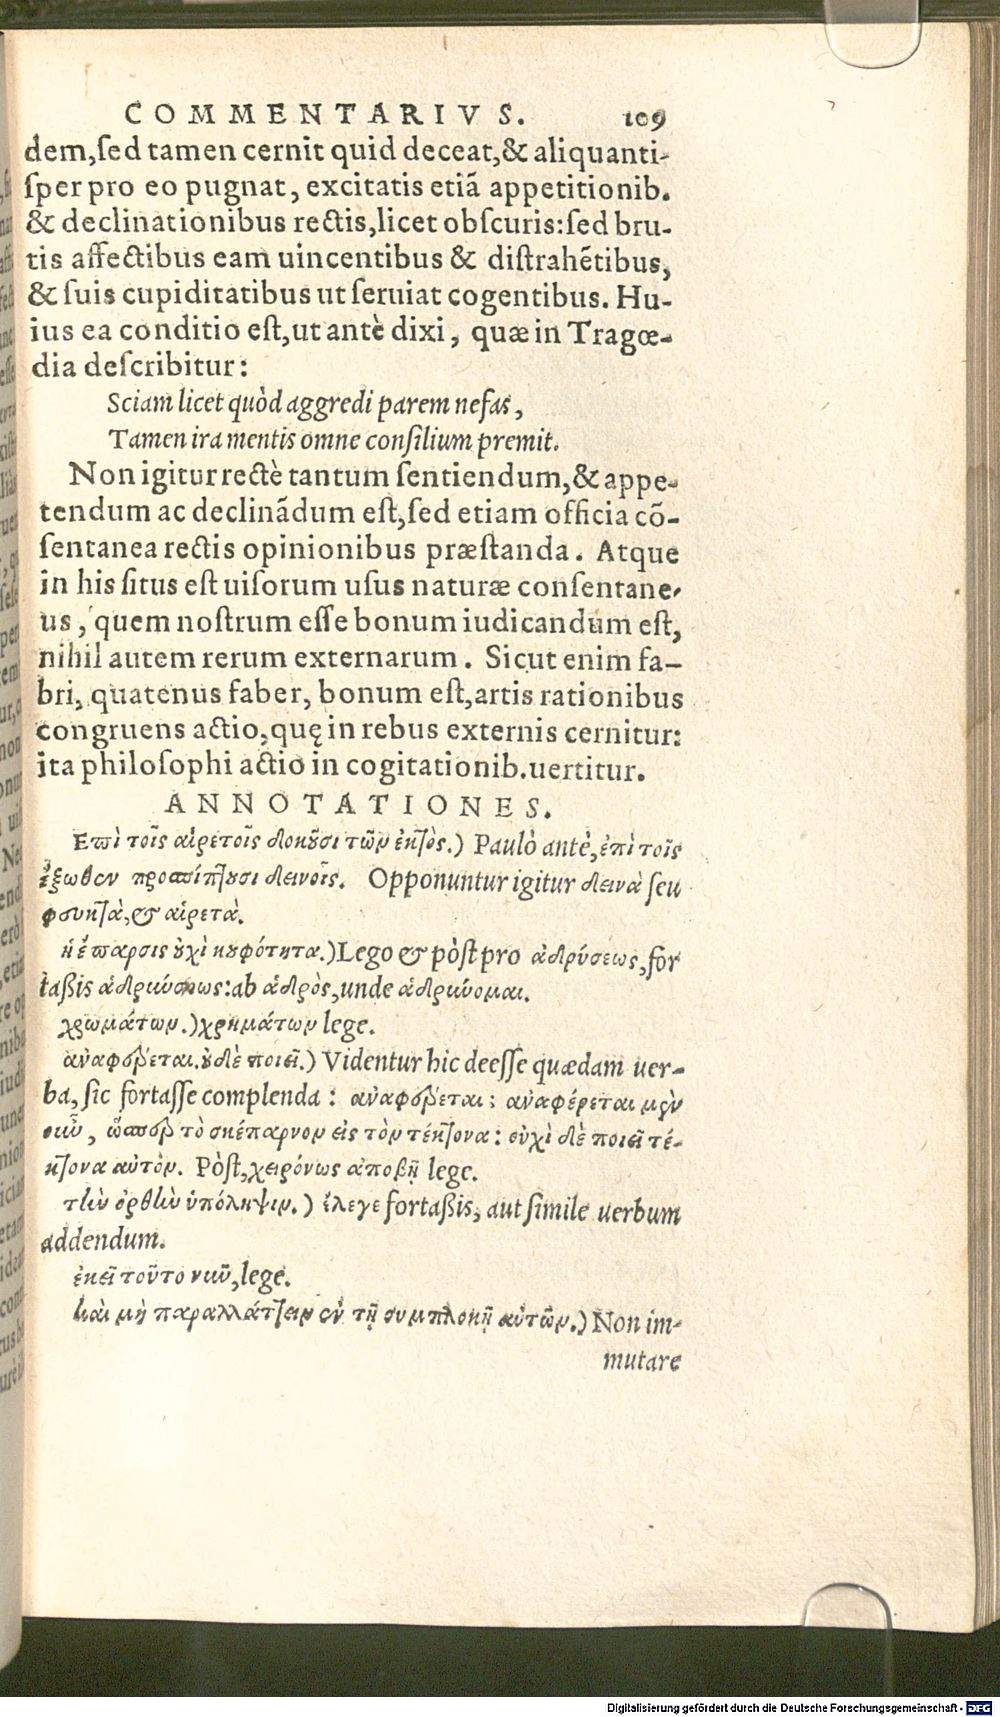 COMMENTARIVS. 109
dem, sed tamen cernit quid deceat, & aliquanti-
sper pro eo pugnat, excitatis etiā appetitionib.
& declinationibus rectis, licet obscuris: sed bru-
tis affectibus eam uincentibus & distrahētibus,
& suis cupiditatibus ut seruiat cogentibus. Hu-
ius ea conditio est, ut antè dixi, quæ in Tragœ-
dia describitur:
Sciam licet quòd aggredi parem nefas,
Tamen ira mentis omne consilium premit.
Non igitur rectè tantum sentiendum, & appe-
tendum ac declinādum est, sed etiam officia cō-
sentanea rectis opinionibus præstanda. Atque
in his situs est uisorum usus naturæ consentane-
us, quem nostrum esse bonum iudicandum est,
nihil autem rerum externarum. Sicut enim fa-
bri, quatenus faber, bonum est, artis rationibus
congruens actio, quę in rebus externis cernitur:
ita philosophi actio in cogitationib. uertitur.
ANNOTATIONES.
Επὶ τοῖς αἱρετοῖς δοκοῦσι τῶν ἐκτὸς.) Paulò antè, ἐπὶ τοῖς
ἔξωθεν προσπίπτουσι δεινοῖς. Opponuntur igitur δεινὰ seu
φευκτὰ, & αἱρετὰ.
ἡ ἔπαρσις οὐχὶ κουφότητα.) Lego & pòst pro ἁδρύσεως, for
taßis ἁδρυύσεως: ab ἁδρὸς, unde ἁδρύνομαι.
χρωμάτων.) χρημάτων lege.
ἀναφέρεται. οὐδὲ ποιεῖ.) Videntur hic deesse quædam uer-
ba, sic fortasse complenda: ἀναφέρεται: ἀναφέρεται μὲν
οὖν, ὥσπερ τὸ σκέπαρνον εἰς τὸν τέκτονα: οὐχὶ δὲ ποιεῖ τέ-
κτονα αὐτὸν. Pòst, χειρόνως ἀποβῇ lege.
τὴν ὀρθὴν ὑπόληψιν.) ἔλεγε fortaßis, aut simile uerbum
addendum.
ἐκεῖ τοῦτο νοῦ, lege.
καὶ μὴ παραλλάττειν ἐν τῇ συμπλοκῇ αὐτῶν.) Non im-
mutare
Digitalisierung gefördert durch die Deutsche Forschungsgemeinschaft - DFG